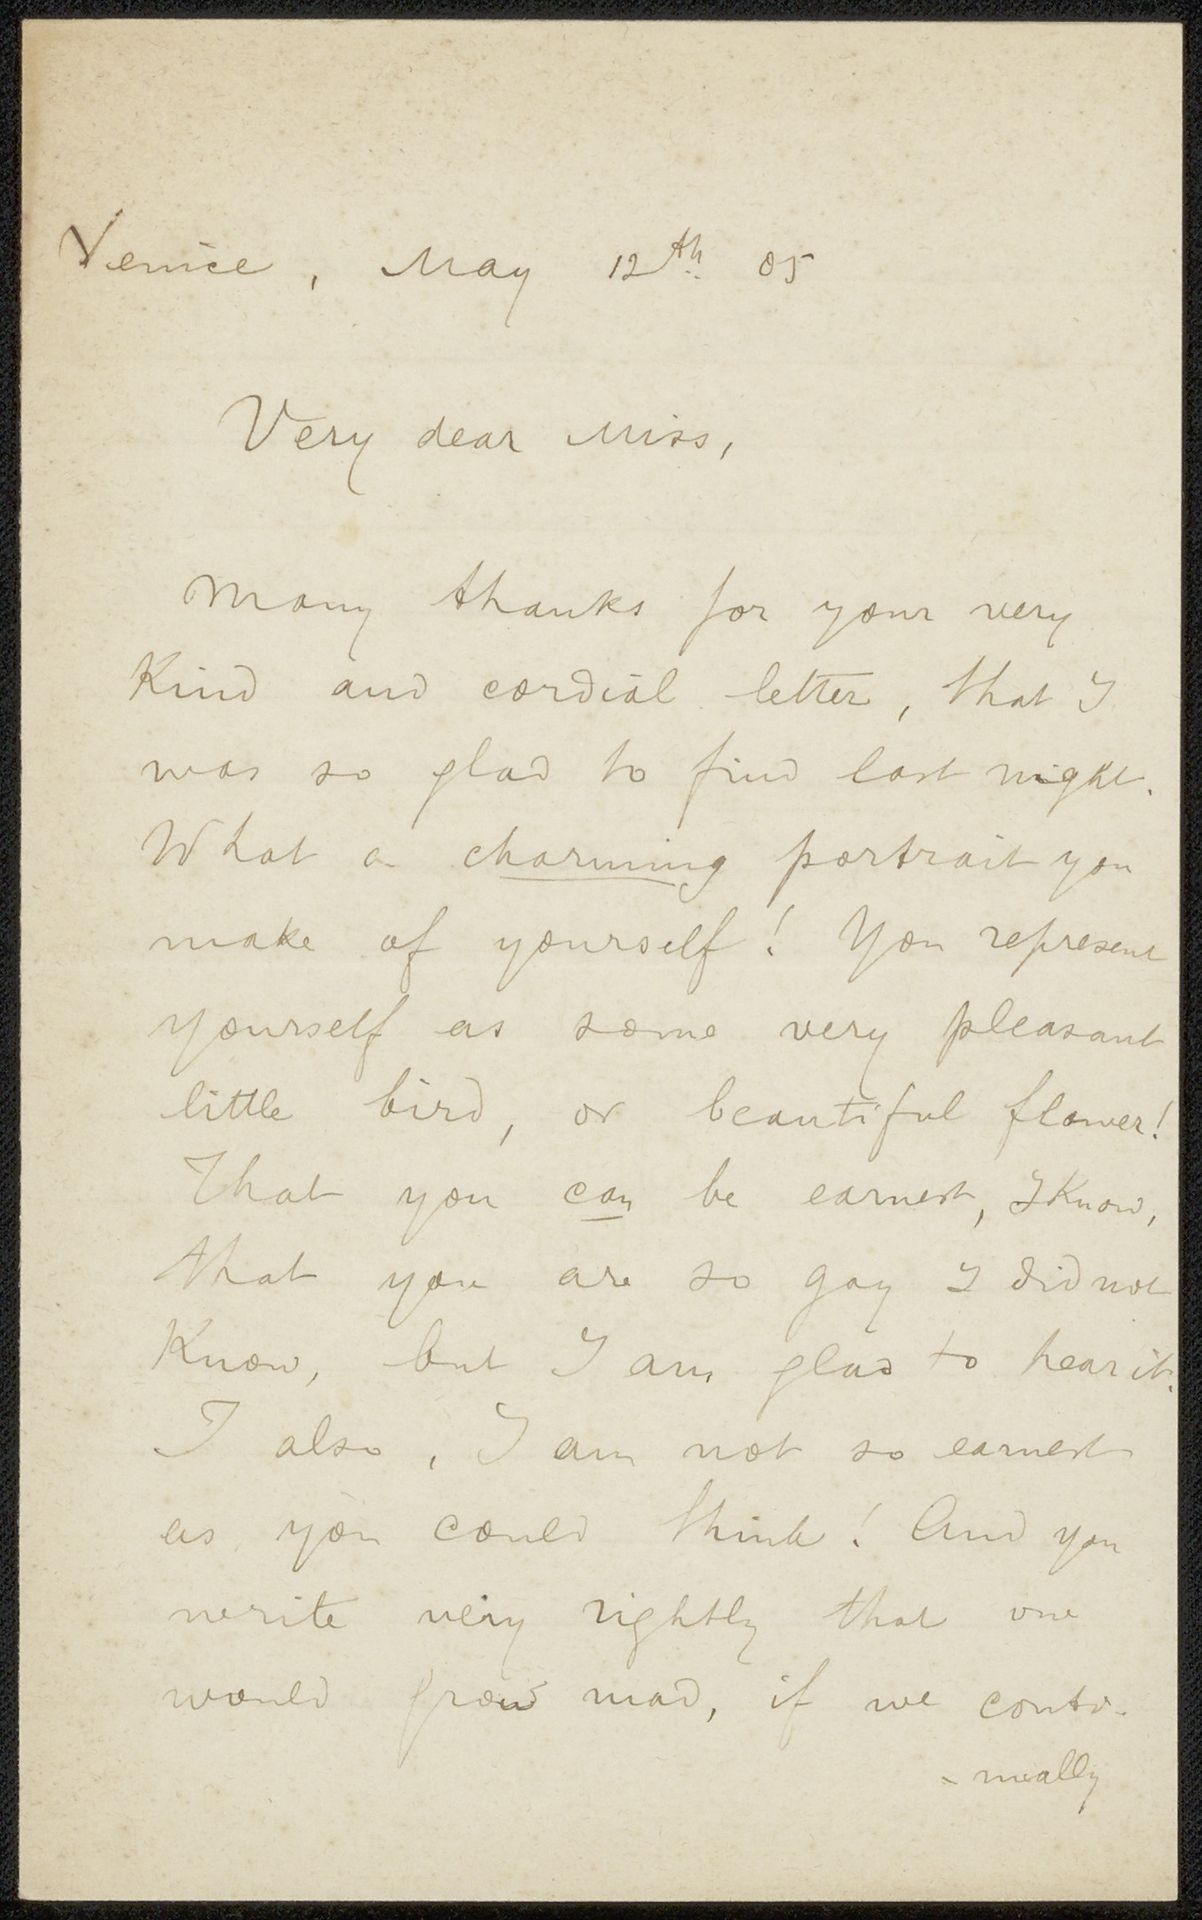 Venice, May 12th 05
Very dear Miss,
Many thanks for your very
Kind and cordial letter, that I
was so glad to find last night.
What a charming portrait you
make of yourself! You represent
yourself as some very pleasant
little bird, or beautiful flower!
That you can be earnest, I Know,
that you are so gay I did not
Know, but I am glad to hear it.
I also, I am not so earnest
as you could think! And you
write very rightly that one
would grow mad, if we conti-
-nually